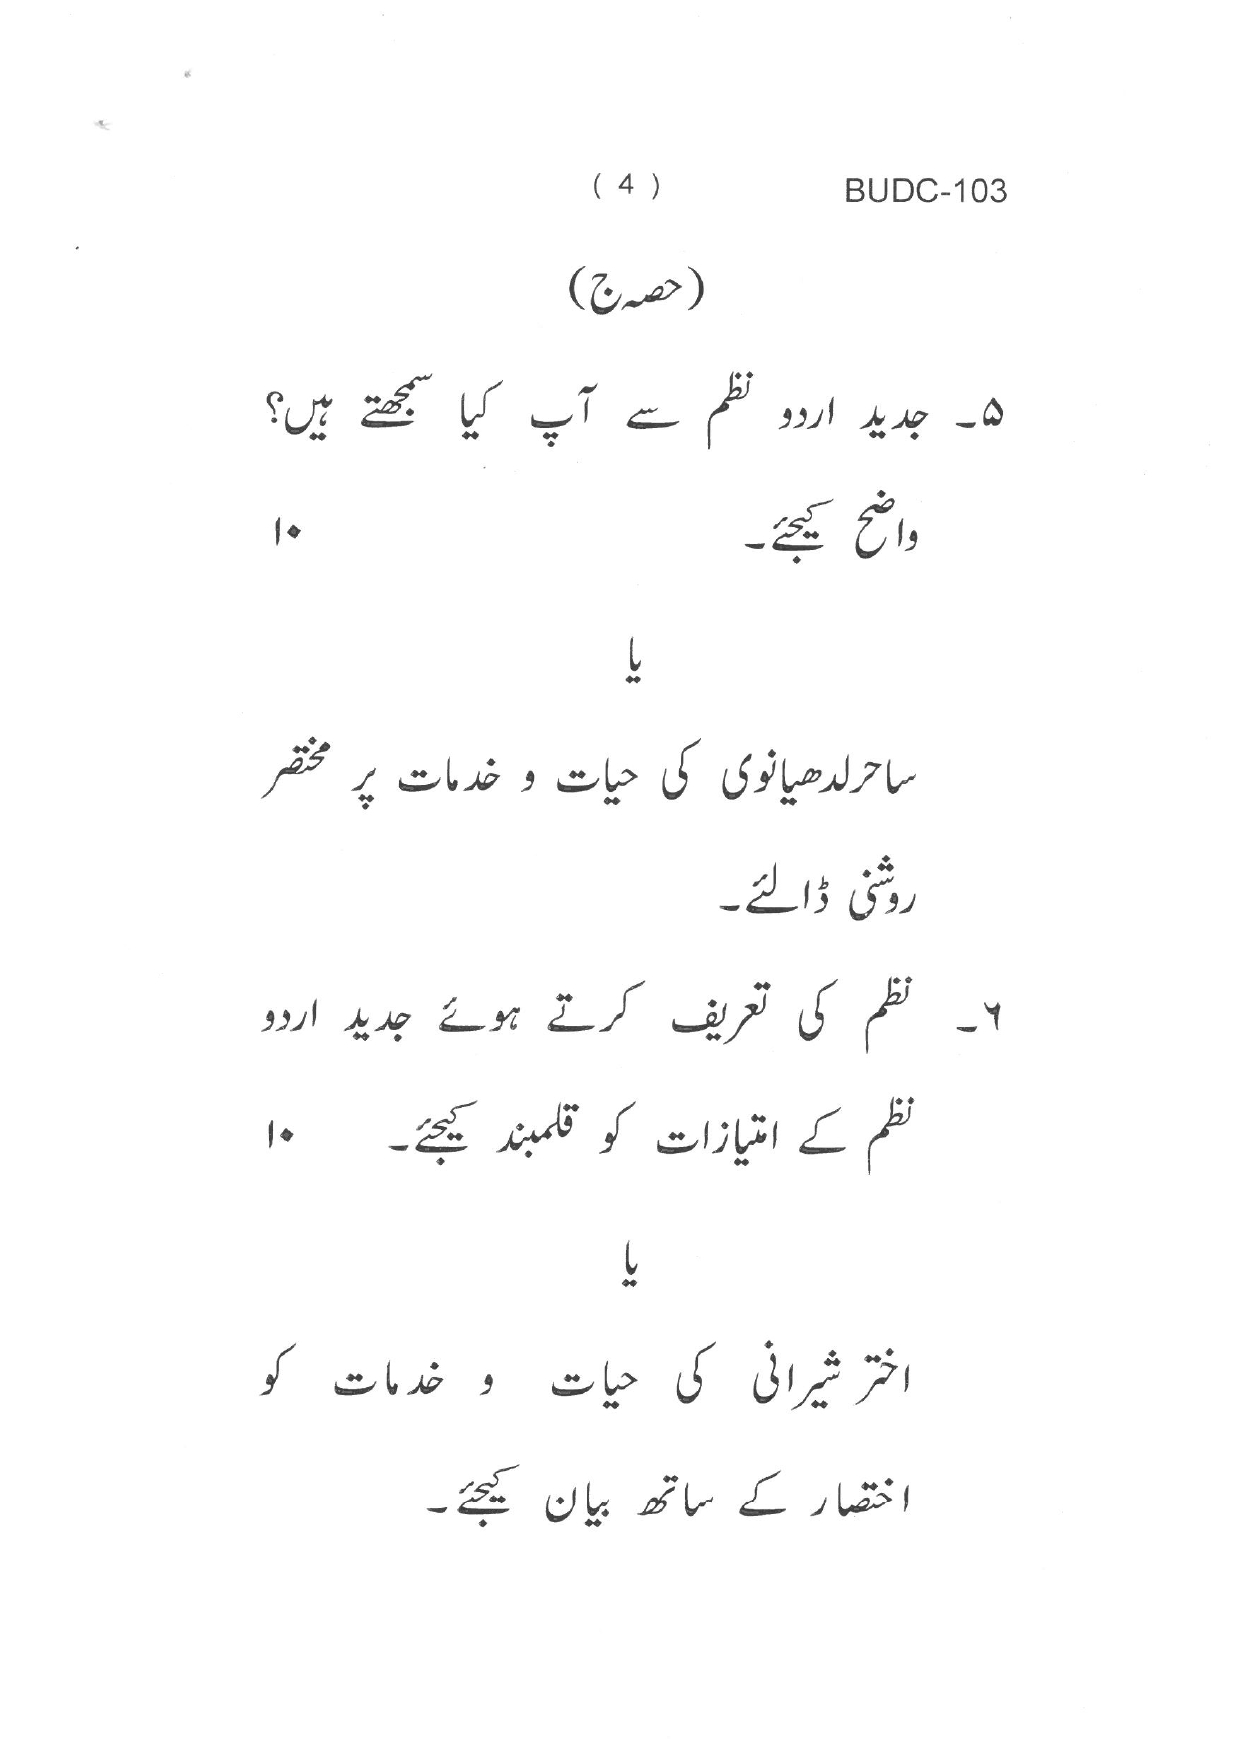 ( 4 ) BUDC-103
(حصہ ج)
۵۔ جدید اردو نظم سے آپ کیا سمجھتے ہیں؟
واضح کیجئے۔ ۱۰
یا
ساحرلدھیانوی کی حیات و خدمات پر مختصر
روشنی ڈالئے۔
۶۔ نظم کی تعریف کرتے ہوئے جدید اردو
نظم کے امتیازات کو قلمبند کیجئے۔ ۱۰
یا
اختر شیرانی کی حیات و خدمات کو
اختصار کے ساتھ بیان کیجئے۔